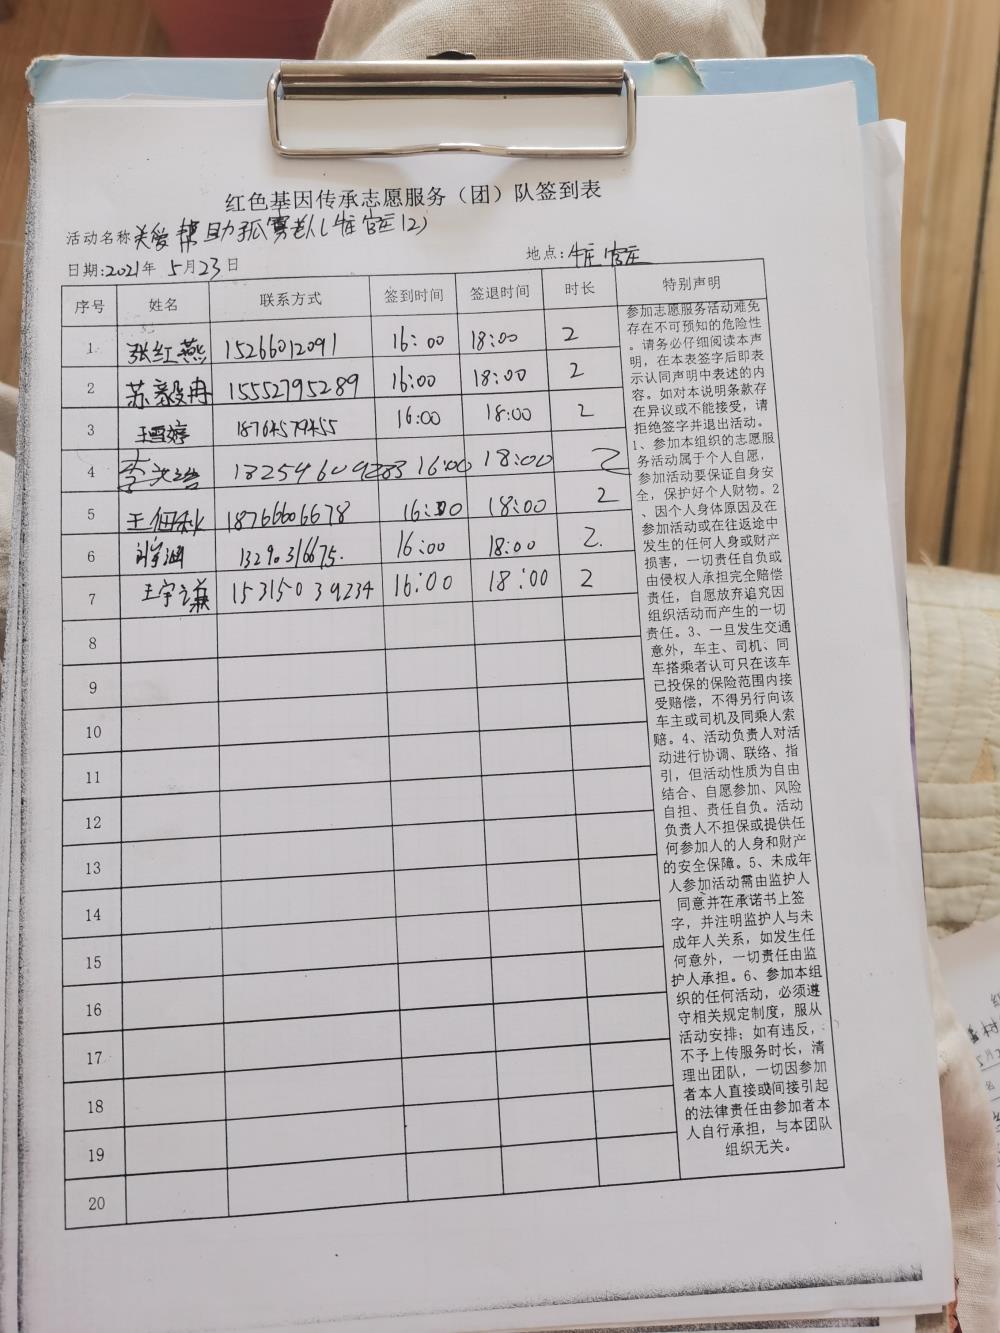 红色基因传承志愿服务（团）队签到表
活动名称 关爱帮助孤寡老人(牛官庄2)
日期:2021年 5月23日 地点: 牛官庄
序号 姓名 联系方式 签到时间 签退时间 时长 特别声明
1 张红燕 15266012091 16:00 18:00 2
2 苏毅冉 15552795289 16:00 18:00 2
3 王雪婷 18764579455 16:00 18:00 2
4 16:00 18:00 2
5 王佃秋 18766606678 16:00 18:00 2
6 13290316675. 16:00 18:00 2.
7 15315039234 16:00 18:00 2
8
9
10
11
12
13
14
15
16
17
18
19
20
参加志愿服务活动难免
存在不可预知的危险性
。请务必仔细阅读本声
明，在本表签字后即表
示认同声明中表述的内
容。如对本说明条款存
在异议或不能接受，请
拒绝签字并退出活动。
1、参加本组织的志愿服
务活动属于个人自愿，
参加活动要保证自身安
全，保护好个人财物。2
、因个人身体原因及在
参加活动或在往返途中
发生的任何人身或财产
损害，一切责任自负或
由侵权人承担完全赔偿
责任，自愿放弃追究因
组织活动而产生的一切
责任。3、一旦发生交通
意外，车主、司机、同
车搭乘者认可只在该车
已投保的保险范围内接
受赔偿，不得另行向该
车主或司机及同乘人索
赔。4、活动负责人对活
动进行协调、联络、指
引，但活动性质为自由
结合、自愿参加、风险
自担、责任自负。活动
负责人不担保或提供任
何参加人的人身和财产
的安全保障。5、未成年
人参加活动需由监护人
同意并在承诺书上签
字，并注明监护人与未
成年人关系，如发生任
何意外，一切责任由监
护人承担。6、参加本组
织的任何活动，必须遵
守相关规定制度，服从
活动安排；如有违反，
不予上传服务时长，清
理出团队，一切因参加
者本人直接或间接引起
的法律责任由参加者本
人自行承担，与本团队
组织无关。